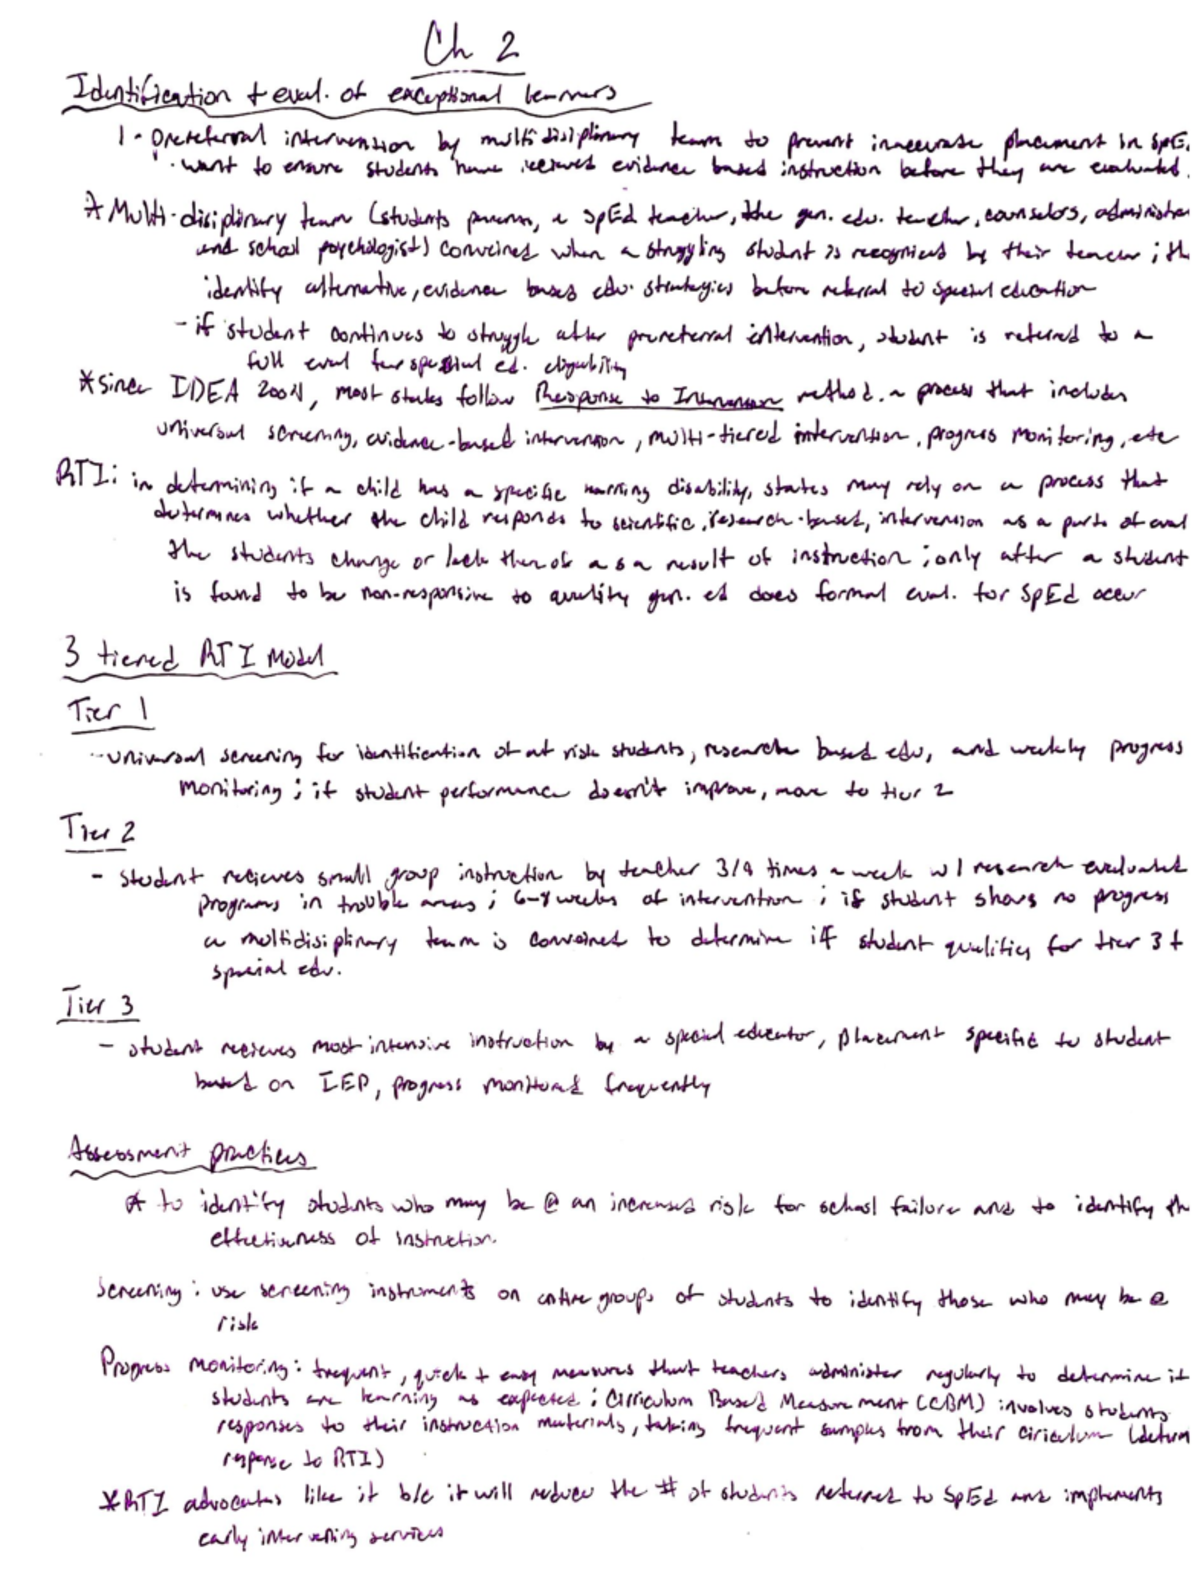 Ch 2
Identification + eval. of exceptional learners
1 - Prereferral intervention by multidisiplinary team to prevent innaccurate placement in SpEd.
· want to ensure students have recieved evidence based instruction before they are evaluated.
* Multi-disiplinary team (students parents, a SpEd teacher, the gen. edu. teacher, counselors, administra
and school psychologist) conveined when a struggling student is recognized by their teacher ; th
identify alternative, evidence based edu. strategies before referral to special education
- if student continues to struggle after prereferral intervention, student is referred to a
full eval for special ed. eligability
* since IDEA 2004, most states follow Response to Intervention method. a process that includes
universal screening, evidence-based intervention, multi-tiered intervention, progress monitoring, etc
RTI: in determining if a child has a specific learning disability, states may rely on a process that
determines whether the child responds to scientific, research-based, intervention as a part of eval
the students change or lack therof as a result of instruction ; only after a student
is found to be non-responsive to quality gen. ed does formal eval. for SpEd occur
3 tiered RTI Model
Tier 1
- universal screening for identification of at risk students, research based edu, and weekly progress
monitoring ; if student performance doesn't improve, move to tier 2
Tier 2
- student recieves small group instruction by teacher 3/4 times a week w/ research evaluated
programs in trouble areas ; 6-8 weeks of intervention ; if student shows no progress
a multidisiplinary team is conveined to determine if student qualifies for tier 3 +
special edu.
Tier 3
- student recieves most intensive instruction by a special educator, placement specific to student
based on IEP, progress monitored frequently
Assessment practices
* to identify students who may be @ an increased risk for school failure and to identify th
effectiveness of instruction.
Screening : use screening instruments on entire groups of students to identify those who may be @
risk
Progress monitoring : frequent, quick + easy measures that teachers administer regularly to determine if
students are learning as expected ; Cirriculum Based Measurement (CBM) involves students
responses to their instruction materials, taking frequent samples from their ciriculum (determ
response to RTI)
* RTI advocates like it b/c it will reduce the # of students referred to SpEd and implements
early intervening services